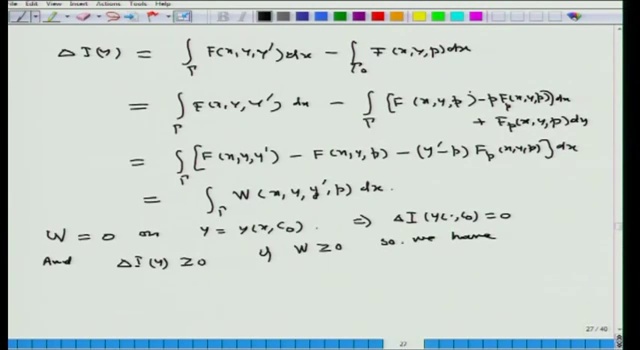 File Edit View Insert Actions Tools Help
Δ I(y) = ∫_Γ F(x,y,y')dx − ∫_Γ₀ F(x,y,p)dx
= ∫_Γ F(x,y,y') dx − ∫_Γ [F(x,y,p) − p F_p(x,y,p)]dx
+ F_p(x,y,p)dy
= ∫_Γ [F(x,y,y') − F(x,y,p) − (y'−p) F_p(x,y,p)]dx
= ∫_Γ W(x,y,y',p) dx.
W = 0 on y = y(x,c₀). ⇒ ΔI(y(·,c₀)) = 0
And ΔI(y) ≥ 0 if W ≥ 0 so. we have
27 / 40
27